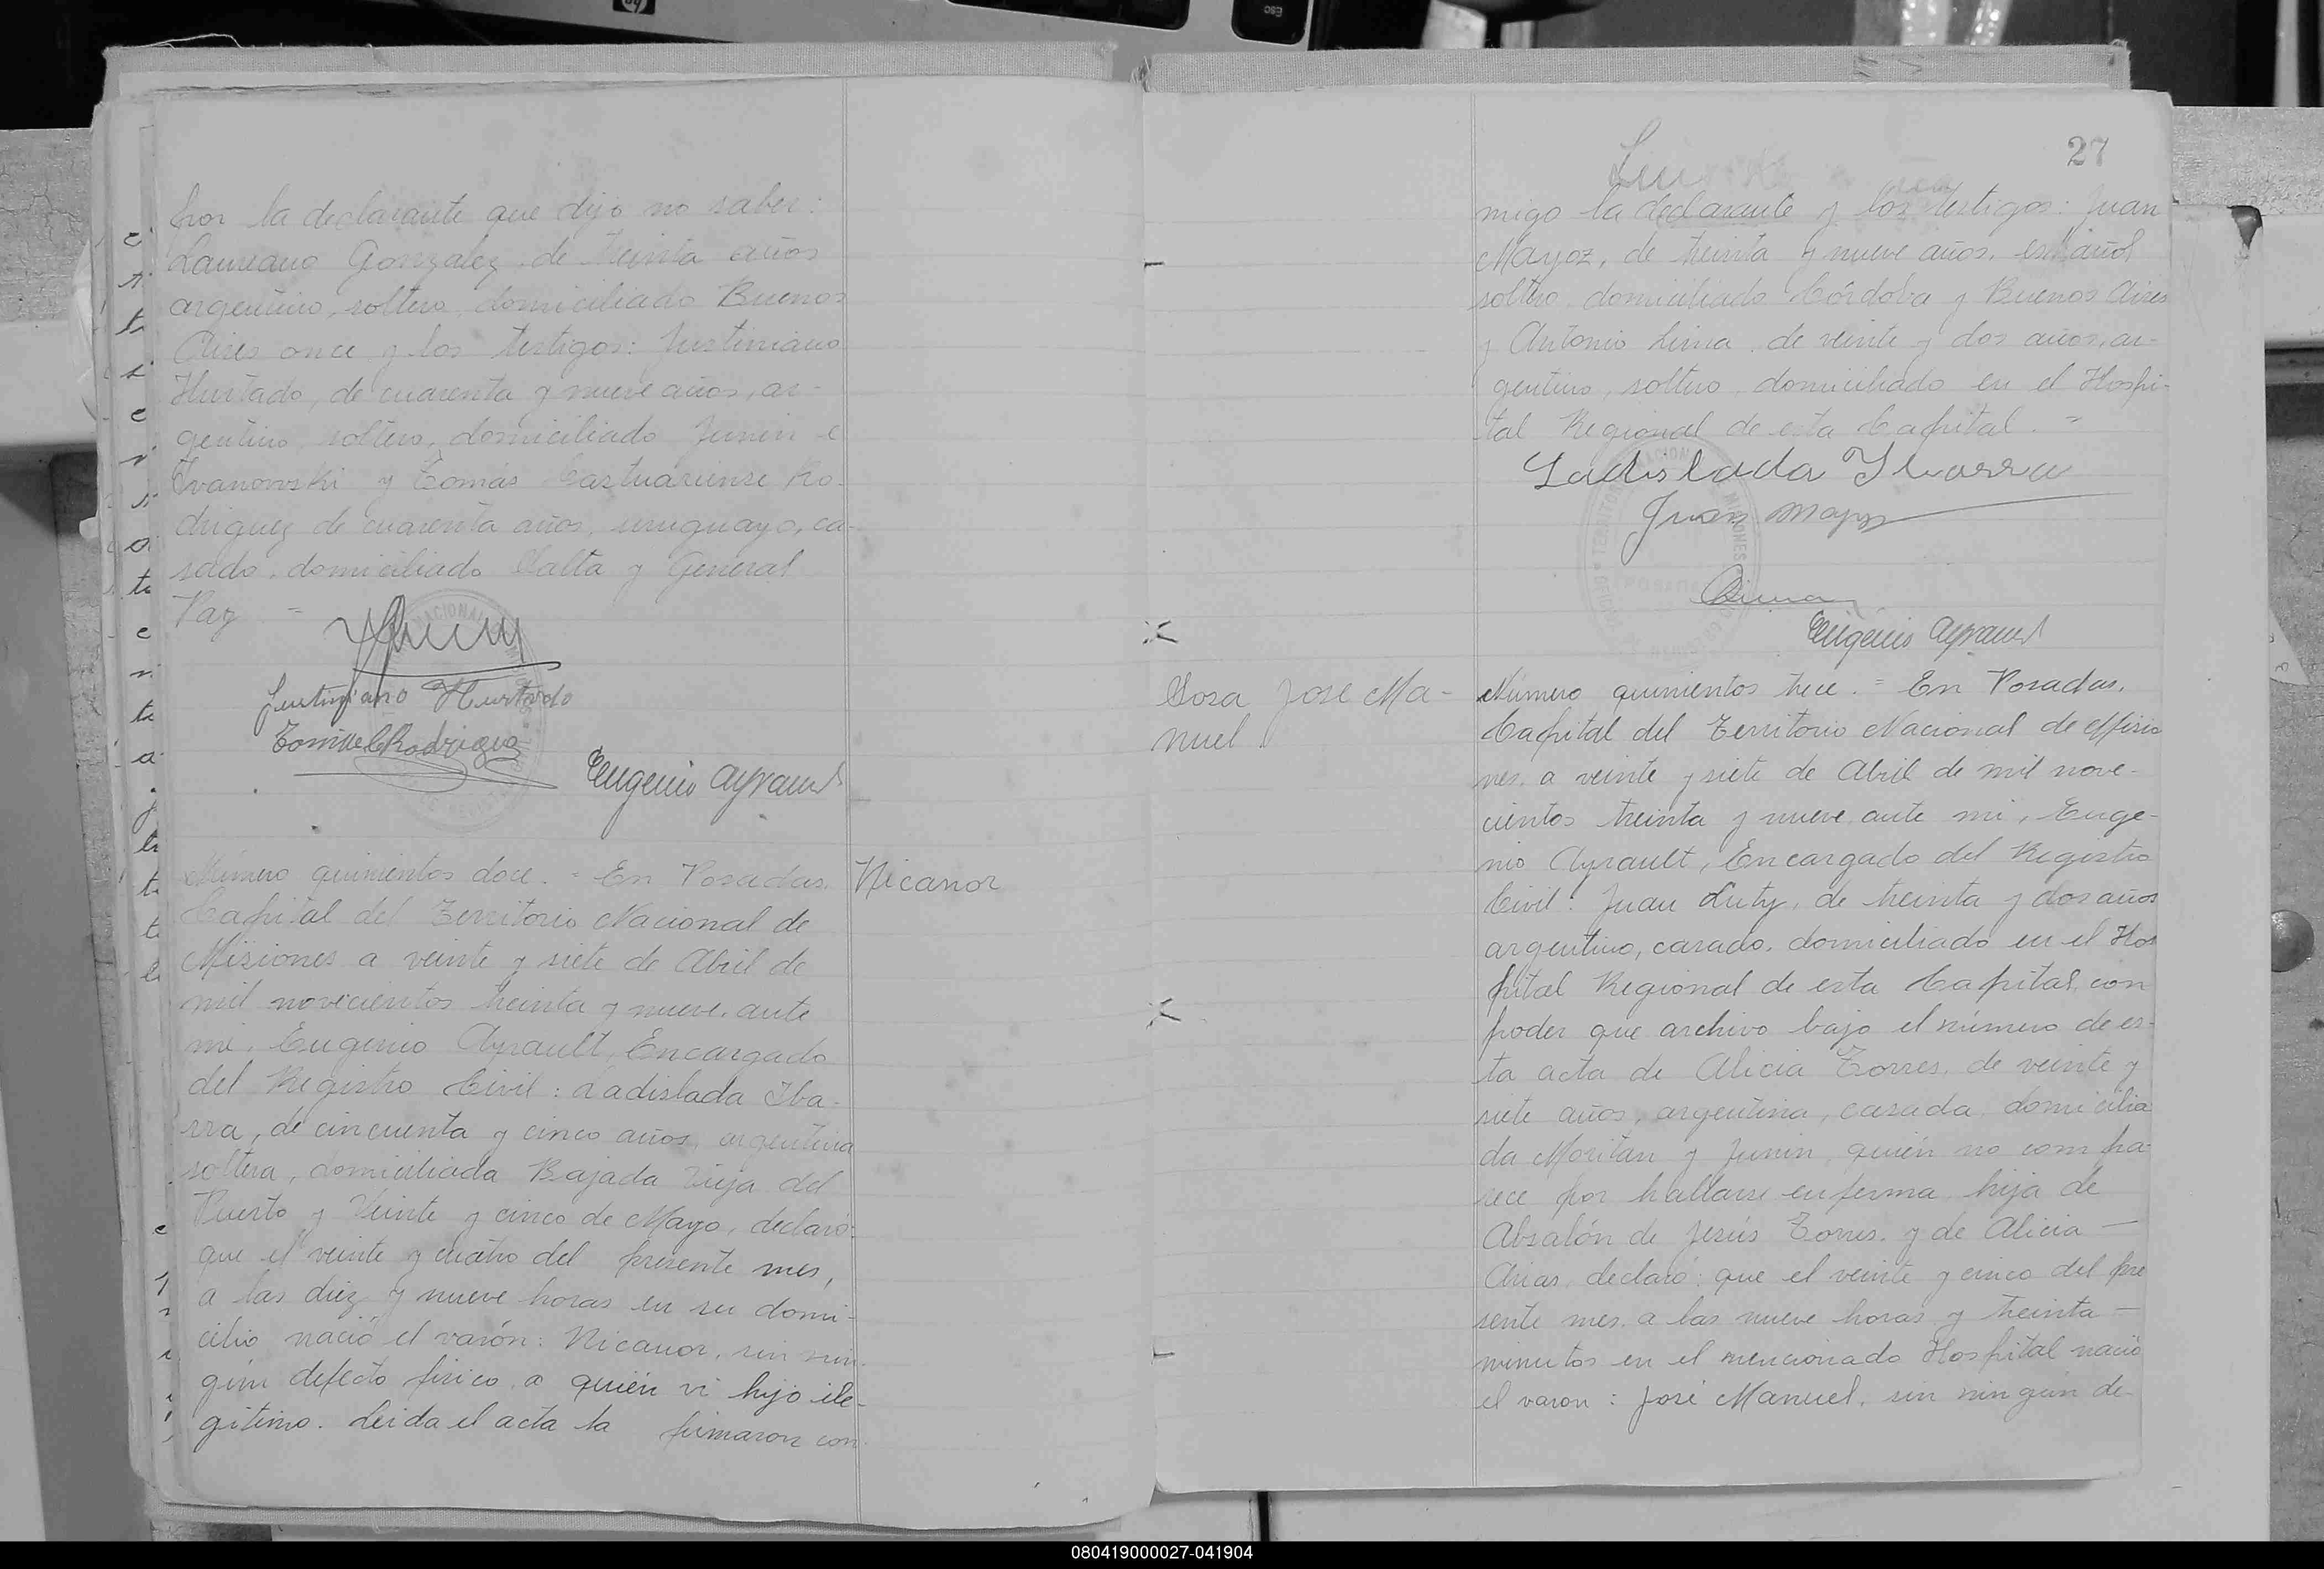 por la declarante que dijo no saber:
Laureano Gonzalez, de treinta años
argentino, soltero, domiciliado Buenos
Aires once y los testigos: Justiniano
Hurtado, de cuarenta y nueve años, ar-
gentino, soltero, domiciliado Junin e
Ivanowski y Tomás Castuariense Ro-
driguez de cuarenta años, uruguayo, ca-
sado, domiciliado Salta y General
Paz =
Justiniano Hurtado
Eugenio Ayrault
Número quinientos doce. = En Posadas,
Capital del Territorio Nacional de
Misiones a veinte y siete de Abril de
mil novecientos treinta y nueve, ante
mi, Eugenio Ayrault, Encargado
del Registro Civil: Ladislada Iba-
rra, de cincuenta y cinco años, argentina
soltera, domiciliada Bajada Vieja del
Puerto y Veinte y cinco de Mayo, declaró:
que el veinte y cuatro del presente mes,
a las diez y nueve horas en su domi-
cilio nació el varón: Nicanor, sin nin-
gún defecto físico, a quién vi hijo ile-
gítimo. Leida el acta la firmaron con-
Nicanor
27
migo la declarante y los testigos: Juan
Mayoz, de treinta y nueve años, español
soltero, domiciliado Córdoba y Buenos Aires
y Antonio Lima, de veinte y dos años, ar-
gentino, soltero, domiciliado en el Hospi-
tal Regional de esta Capital. =
Ladislada Ibarra
Juan Mayoz
Lima
Eugenio Ayrault
Sosa José Ma-
nuel
Número quinientos trece. = En Posadas,
Capital del Territorio Nacional de Misio
nes, a veinte y siete de Abril de mil nove-
cientos treinta y nueve, ante mi, Euge-
nio Ayrault, Encargado del Registro
Civil: Juan Luty, de treinta y dos años
argentino, casado, domiciliado en el Hos
pital Regional de esta Capital, con
poder que archivo bajo el número de es-
ta acta de Alicia Torres, de veinte y
siete años, argentina, casada, domicilia
da Moritán y Junin, quién no compa-
rece por hallarse enferma, hija de
Absalón de Jesús Torres, y de Alicia —
Arias, declaró: que el veinte y cinco del pre
sente mes, a las nueve horas y treinta —
minutos en el mencionado Hospital nació
el varon: José Manuel, sin ningún de-
080419000027-041904